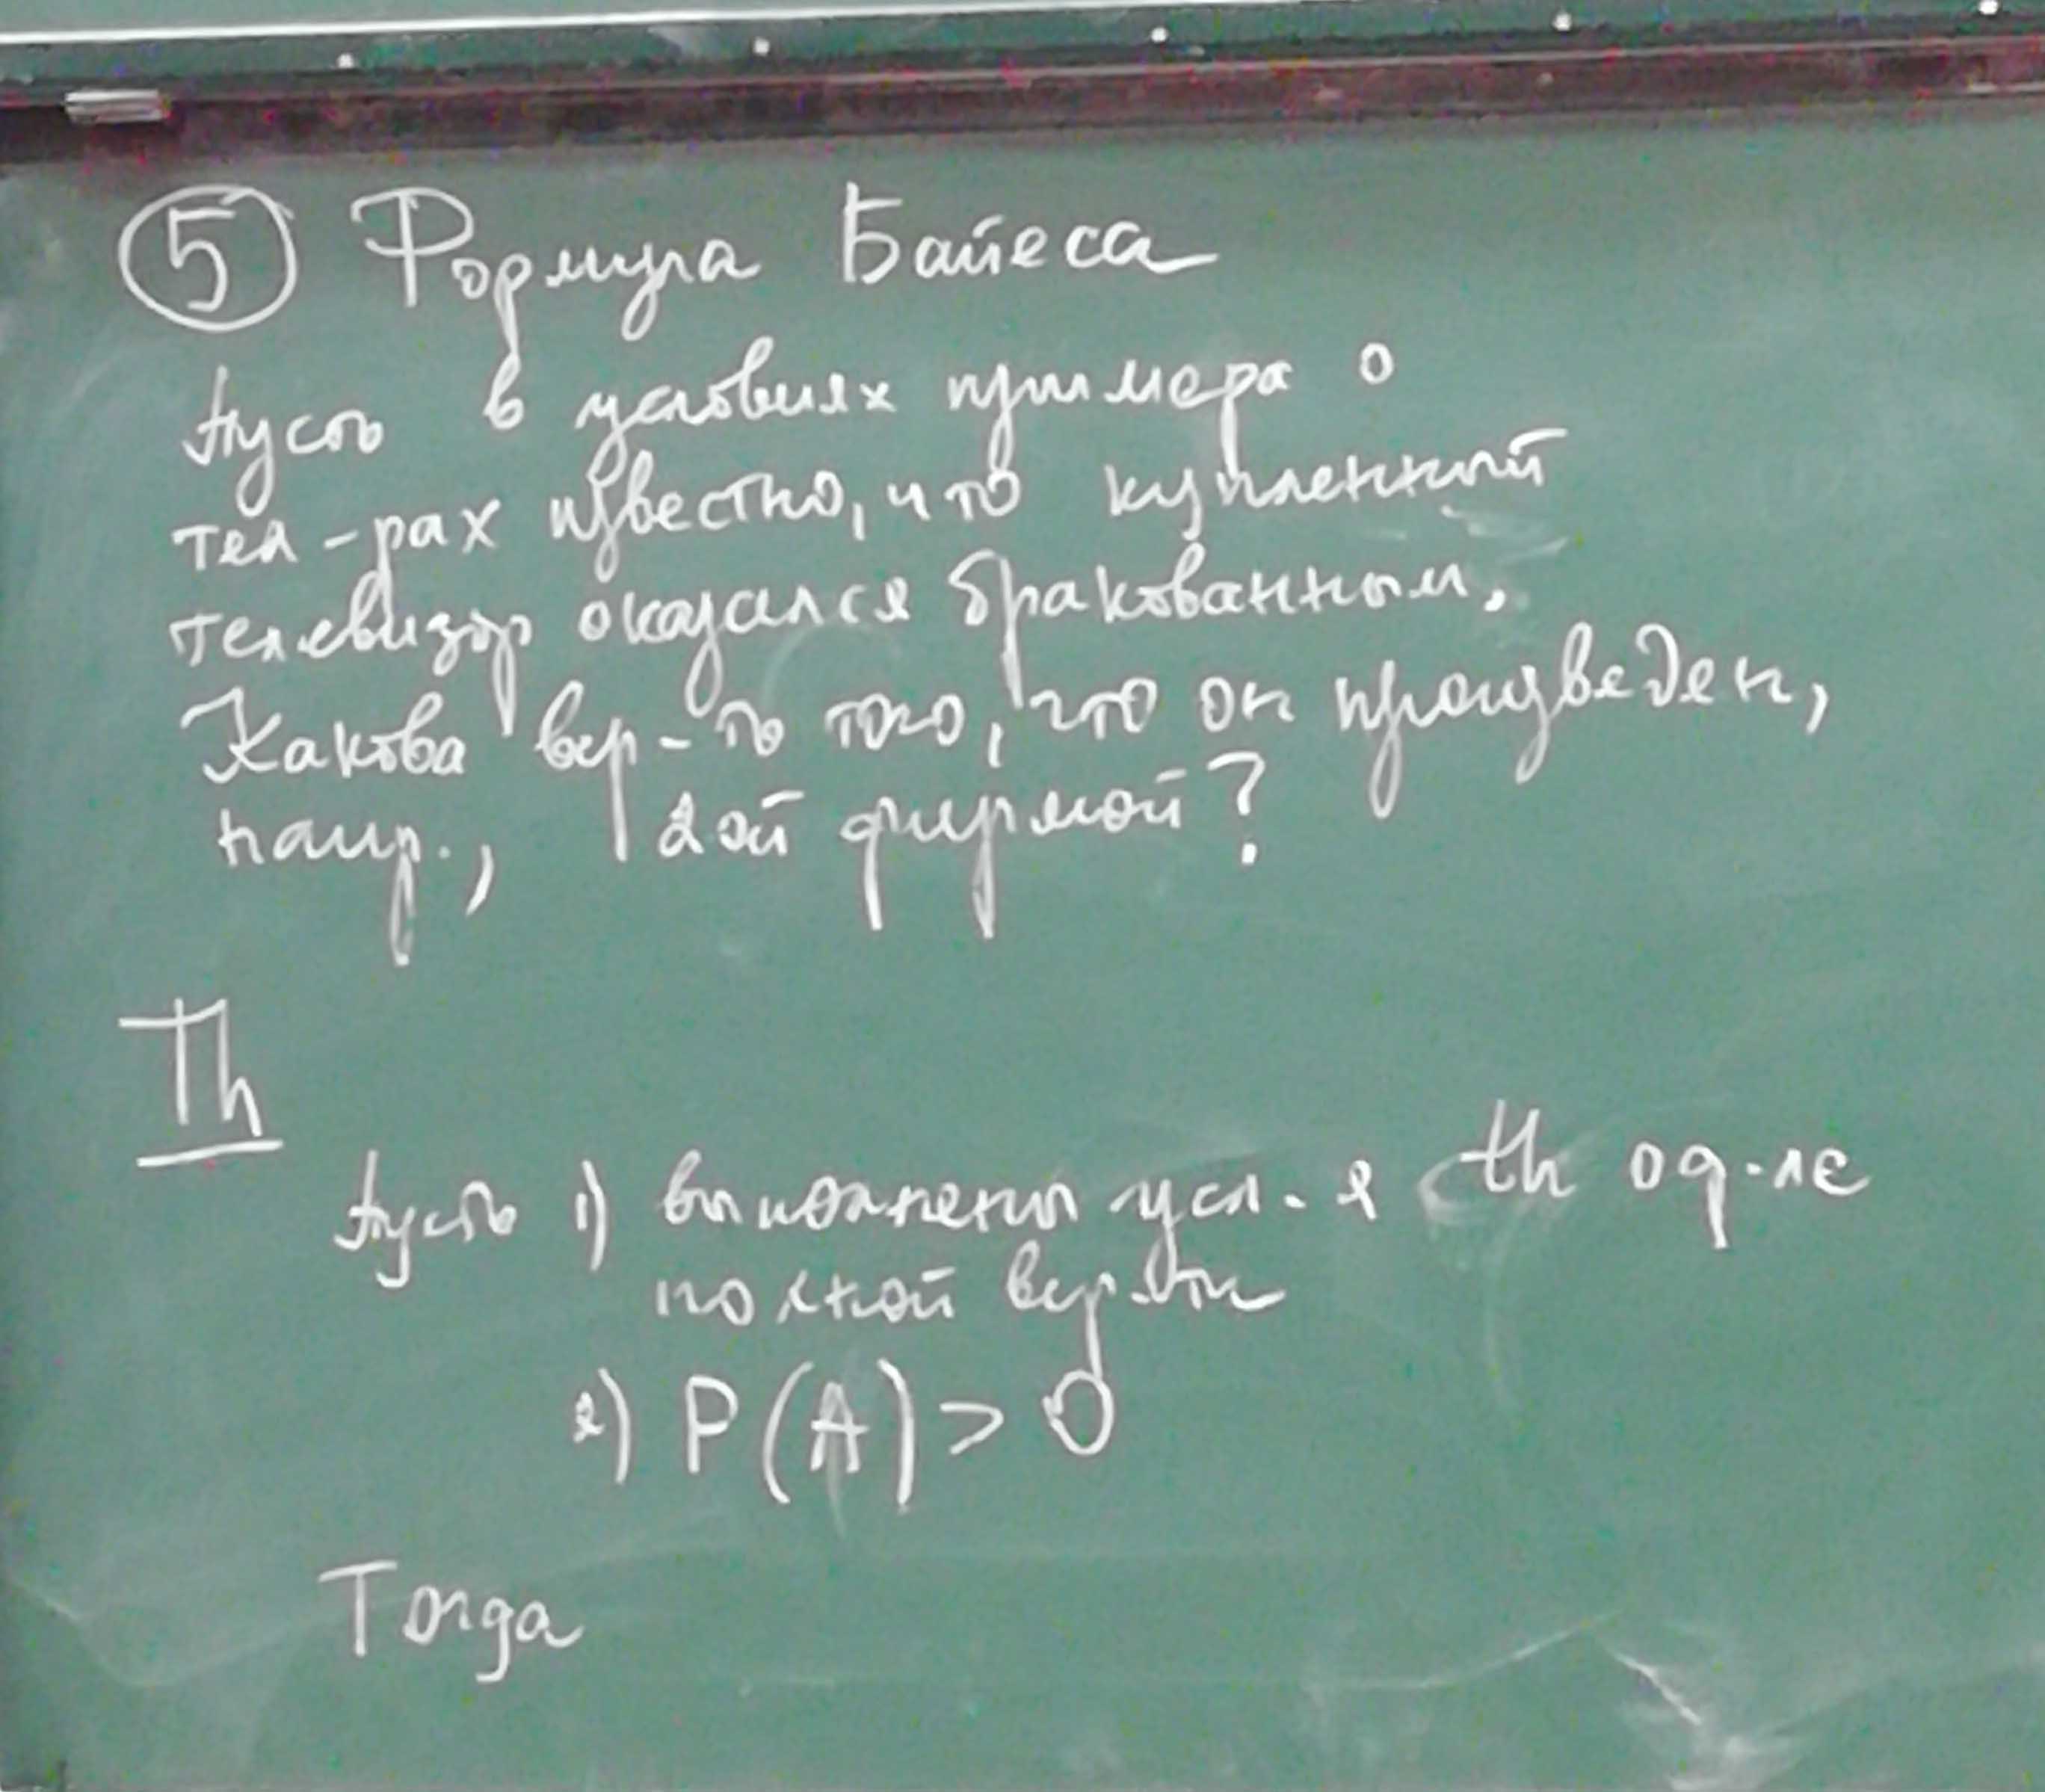 ⑤ Формула Байеса
Пусть в условиях примера о
тел-рах известно, что купленный
телевизор оказался бракованным.
Какова вер-ть того, что он произведен,
напр., 2ой фирмой?
Th
Пусть 1) выполнены усл-я th о ф-ле
полной вер-ти
2) P(A) > 0
Тогда